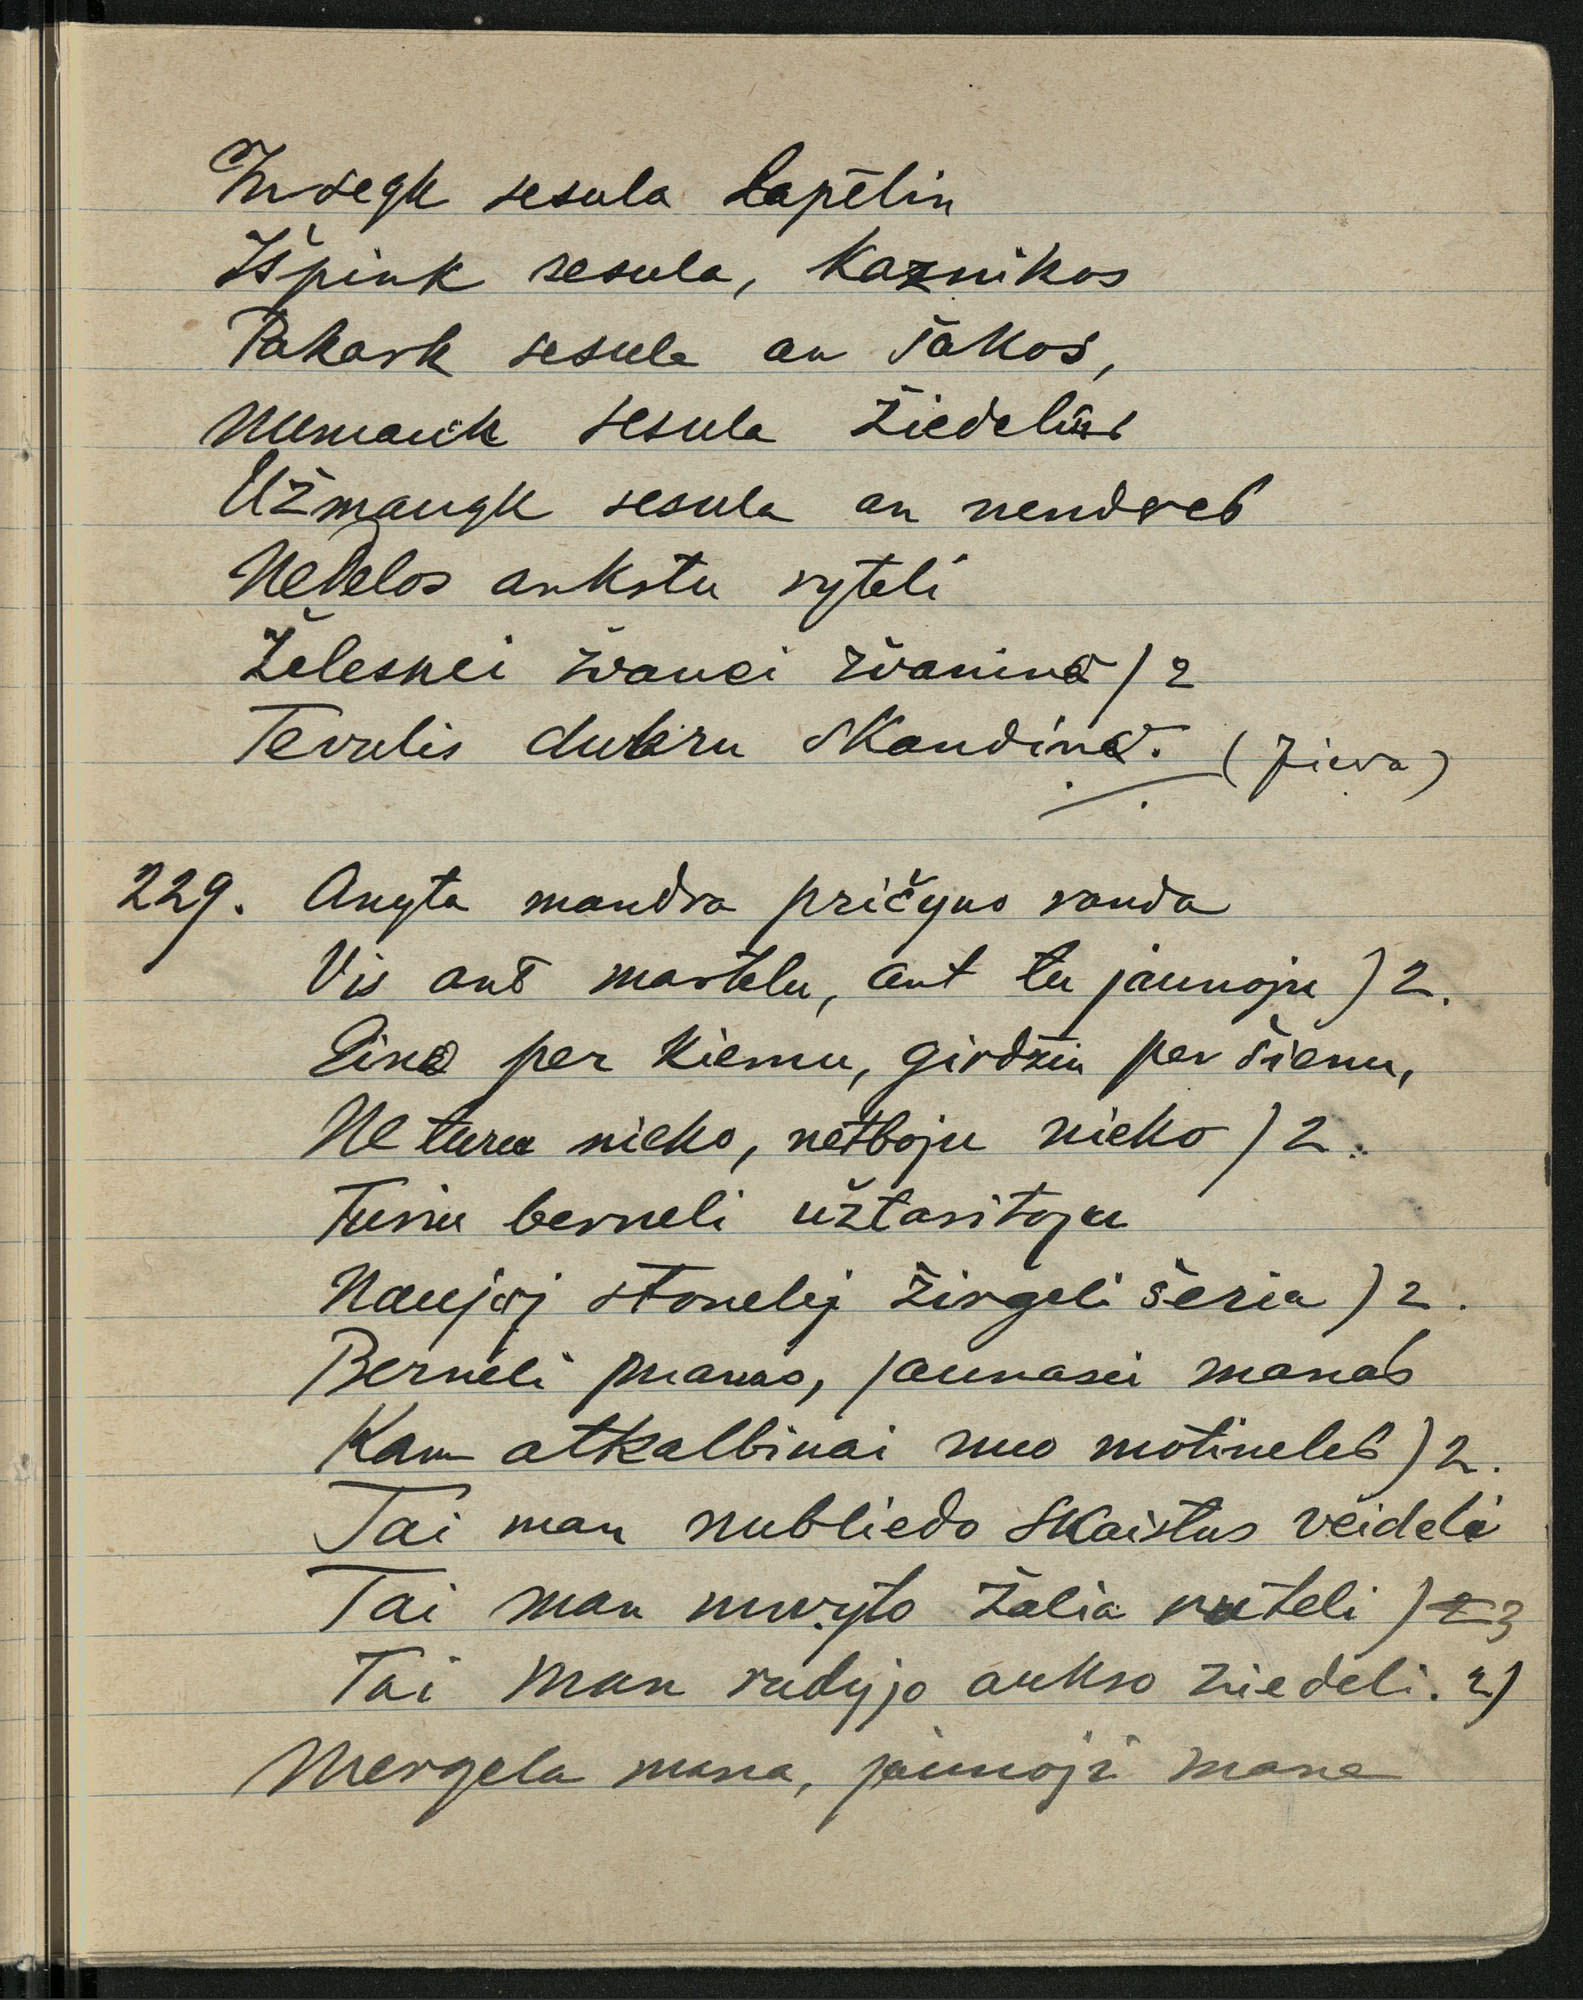 Insegk sesula lapėlin
Išpink sesula, kaznikos
Pakark sesula an šakos,
Numauk sesula žiedelius
Užmaugk sesula an nendres
Nedelos ankstu ryteli
Želesnei zvanei zvanina / 2
Tevulis dukru skandina. (Jieva)
229. Anyta mandra pričyno randa
Vis ant martelu, ant tu jaunoju ) 2.
Eina per kiemu, girdžiu per šienu,
Ne turu nieko, netboju nieko ) 2.
Turiu berneli užtaritoju
Naujoj stonelej žirgeli šeria ) 2.
Berneli manas, jaunasii manas
Kam atkalbinai nuo motineles ) 2.
Tai man nubliedo skaistus veideli
Tai man nuvyto žalia ruteli ) 2 3
Tai man rudyjo aukso ziedeli. 2)
Mergela mana, jaunoji mana